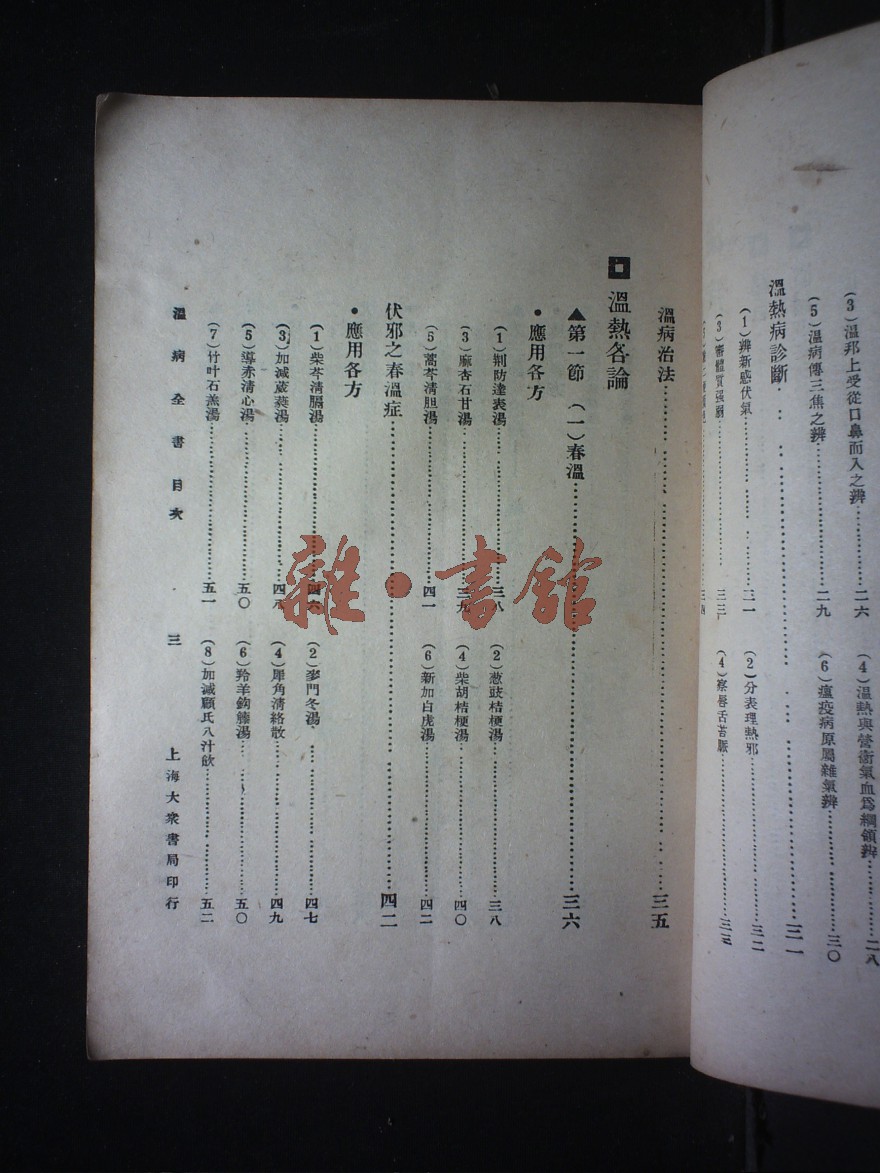 (3)溫邪上受從口鼻而入之辨……二六
(4)溫熱與營衛氣血爲綱領辨……二八
(5)溫病傳三焦之辨……二九
(6)瘟疫病原屬雜氣辨……三〇
溫熱病診斷……三一
(1)辨新感伏氣……三一
(2)分表理熱邪……三二
(3)審體質强弱……三三
(4)察唇舌苔脈……三三
溫病治法……三五
溫熱各論
▲第一節 (一)春溫……三六
•應用各方
(1)荆防達表湯……三八
(2)葱豉桔梗湯……三八
(3)麻杏石甘湯……三九
(4)柴胡桔梗湯……四〇
(5)蒿芩清胆湯……四一
(6)新加白虎湯……四二
伏邪之春溫症……四二
•應用各方
(1)柴芩清膈湯……四六
(2)麥門冬湯……四七
(3)加減葳蕤湯……四八
(4)犀角清絡散……四九
(5)導赤清心湯……五〇
(6)羚羊鈎藤湯……五〇
(7)竹叶石羔湯……五一
(8)加減顧氏八汁飲……五二
溫病全書目次 三 上海大衆書局印行
雜·書館